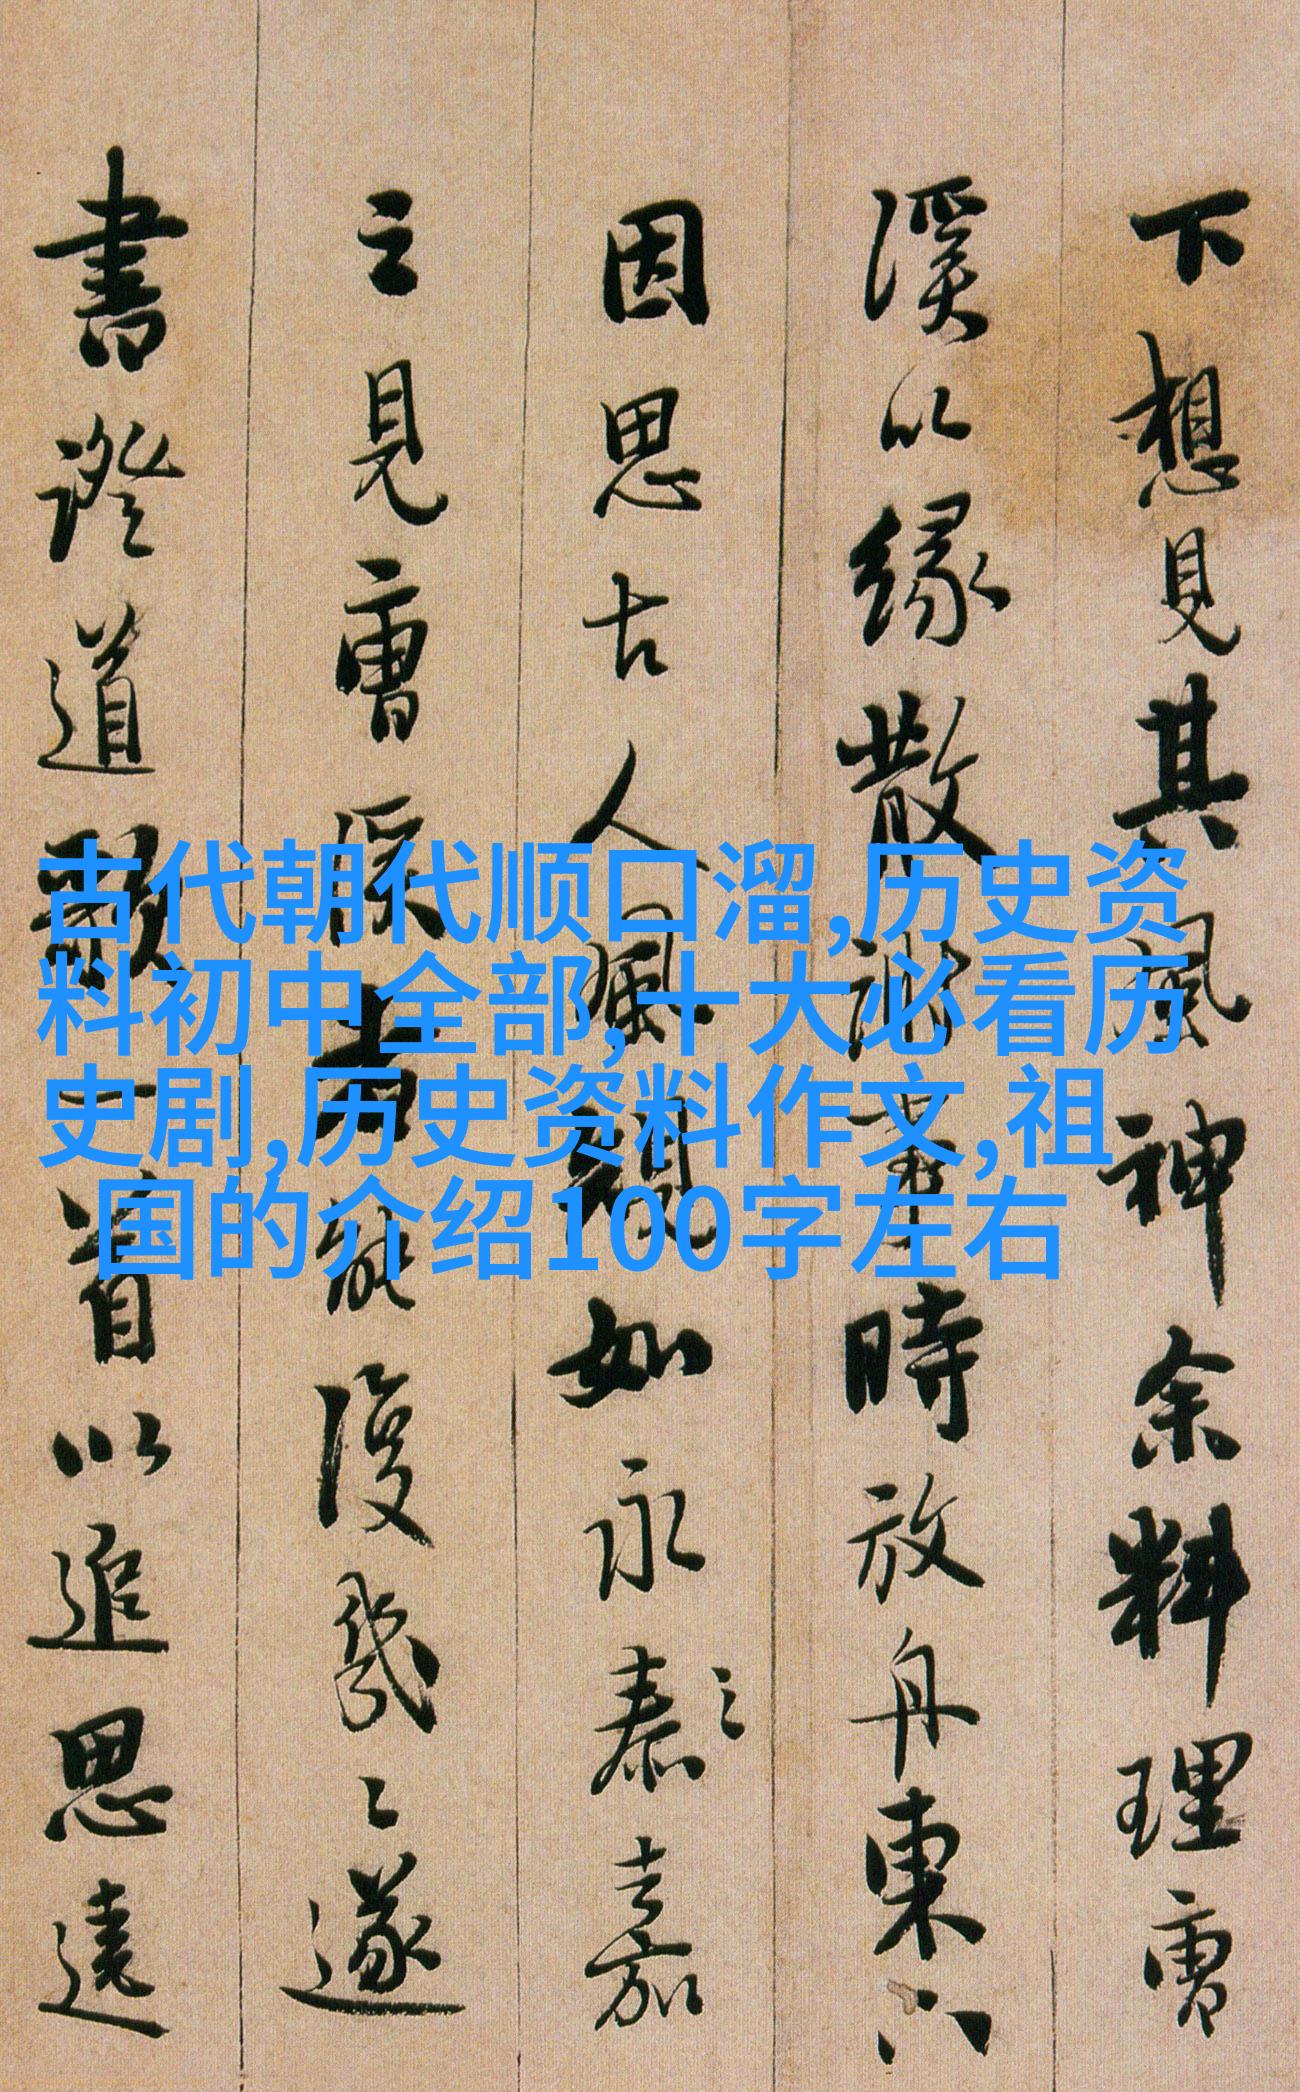 下想見其風神余料理曹
溪以緣散事時放舟東下
因思古人風韻如永泰嘉
之見曹溪者能復幾遂
書證道歌一首以追思遠
古代朝代顺口溜,历史资
料初中全部,十大必看历
史剧,历史资料作文,祖
国的介绍100字左右